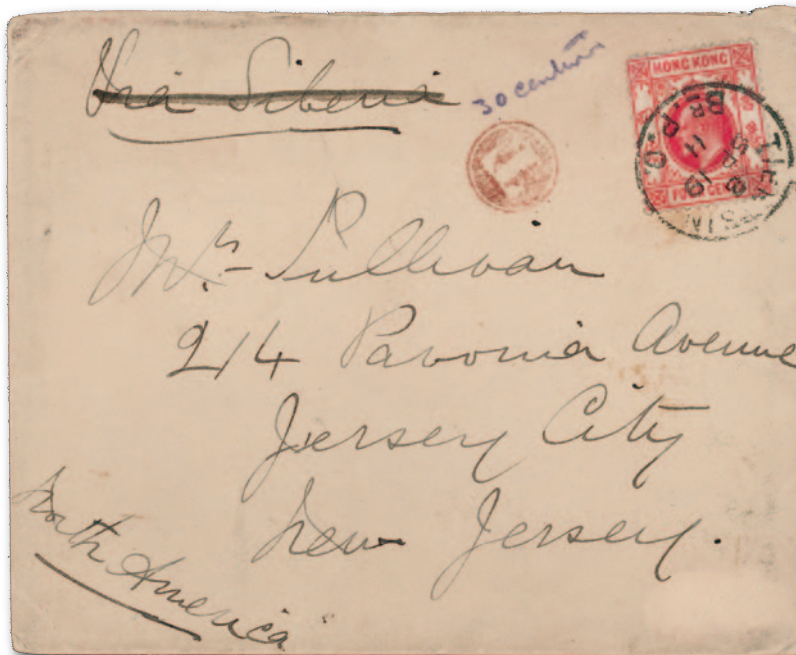 Via Siberia
30 centimes
HONG KONG
FOUR CENTS
TIENTSIN
Br. P.O.
11
SP 19
T
Mrs. Sullivan
214 Pavonia Avenue
Jersey City
New Jersey.
North America